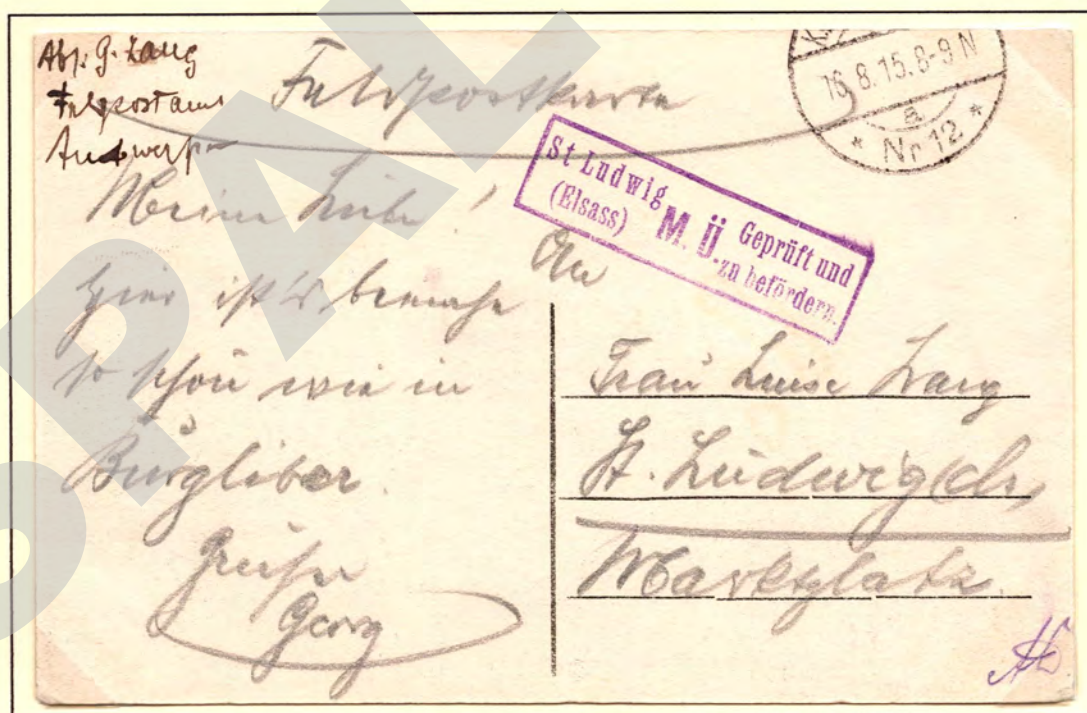 Abs. G. Lang
Feldpostamt
Antwerpen
Feldpostkarte
16.8.15.8-9N
a
* Nr 12 *
St Ludwig
(Elsass)
M. Ü.
Geprüft und
zu befördern.
Meine Liebe!
Hier ist's beinahe
so schön wie in
Burglibor.
Grüße
Georg
An
Frau Luise Lang
St. Ludwig Els,
Marktplatz.
OPAL